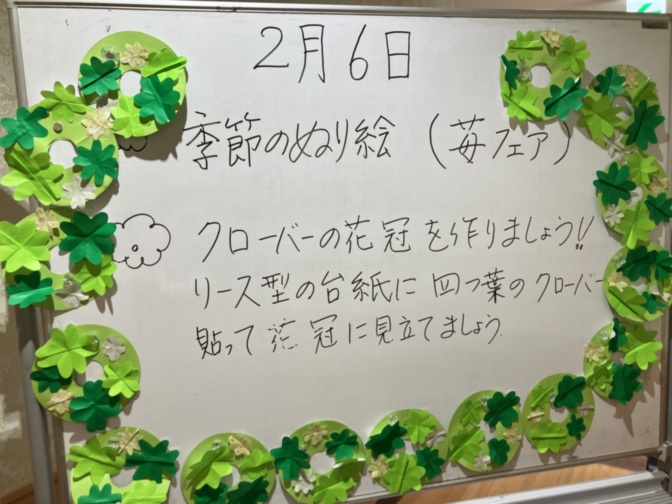 2月6日
季節のぬり絵 (苺フェア)
クローバーの花冠を作りましょう!!
リース型の台紙に四つ葉のクローバー
貼って花冠に見立てましょう